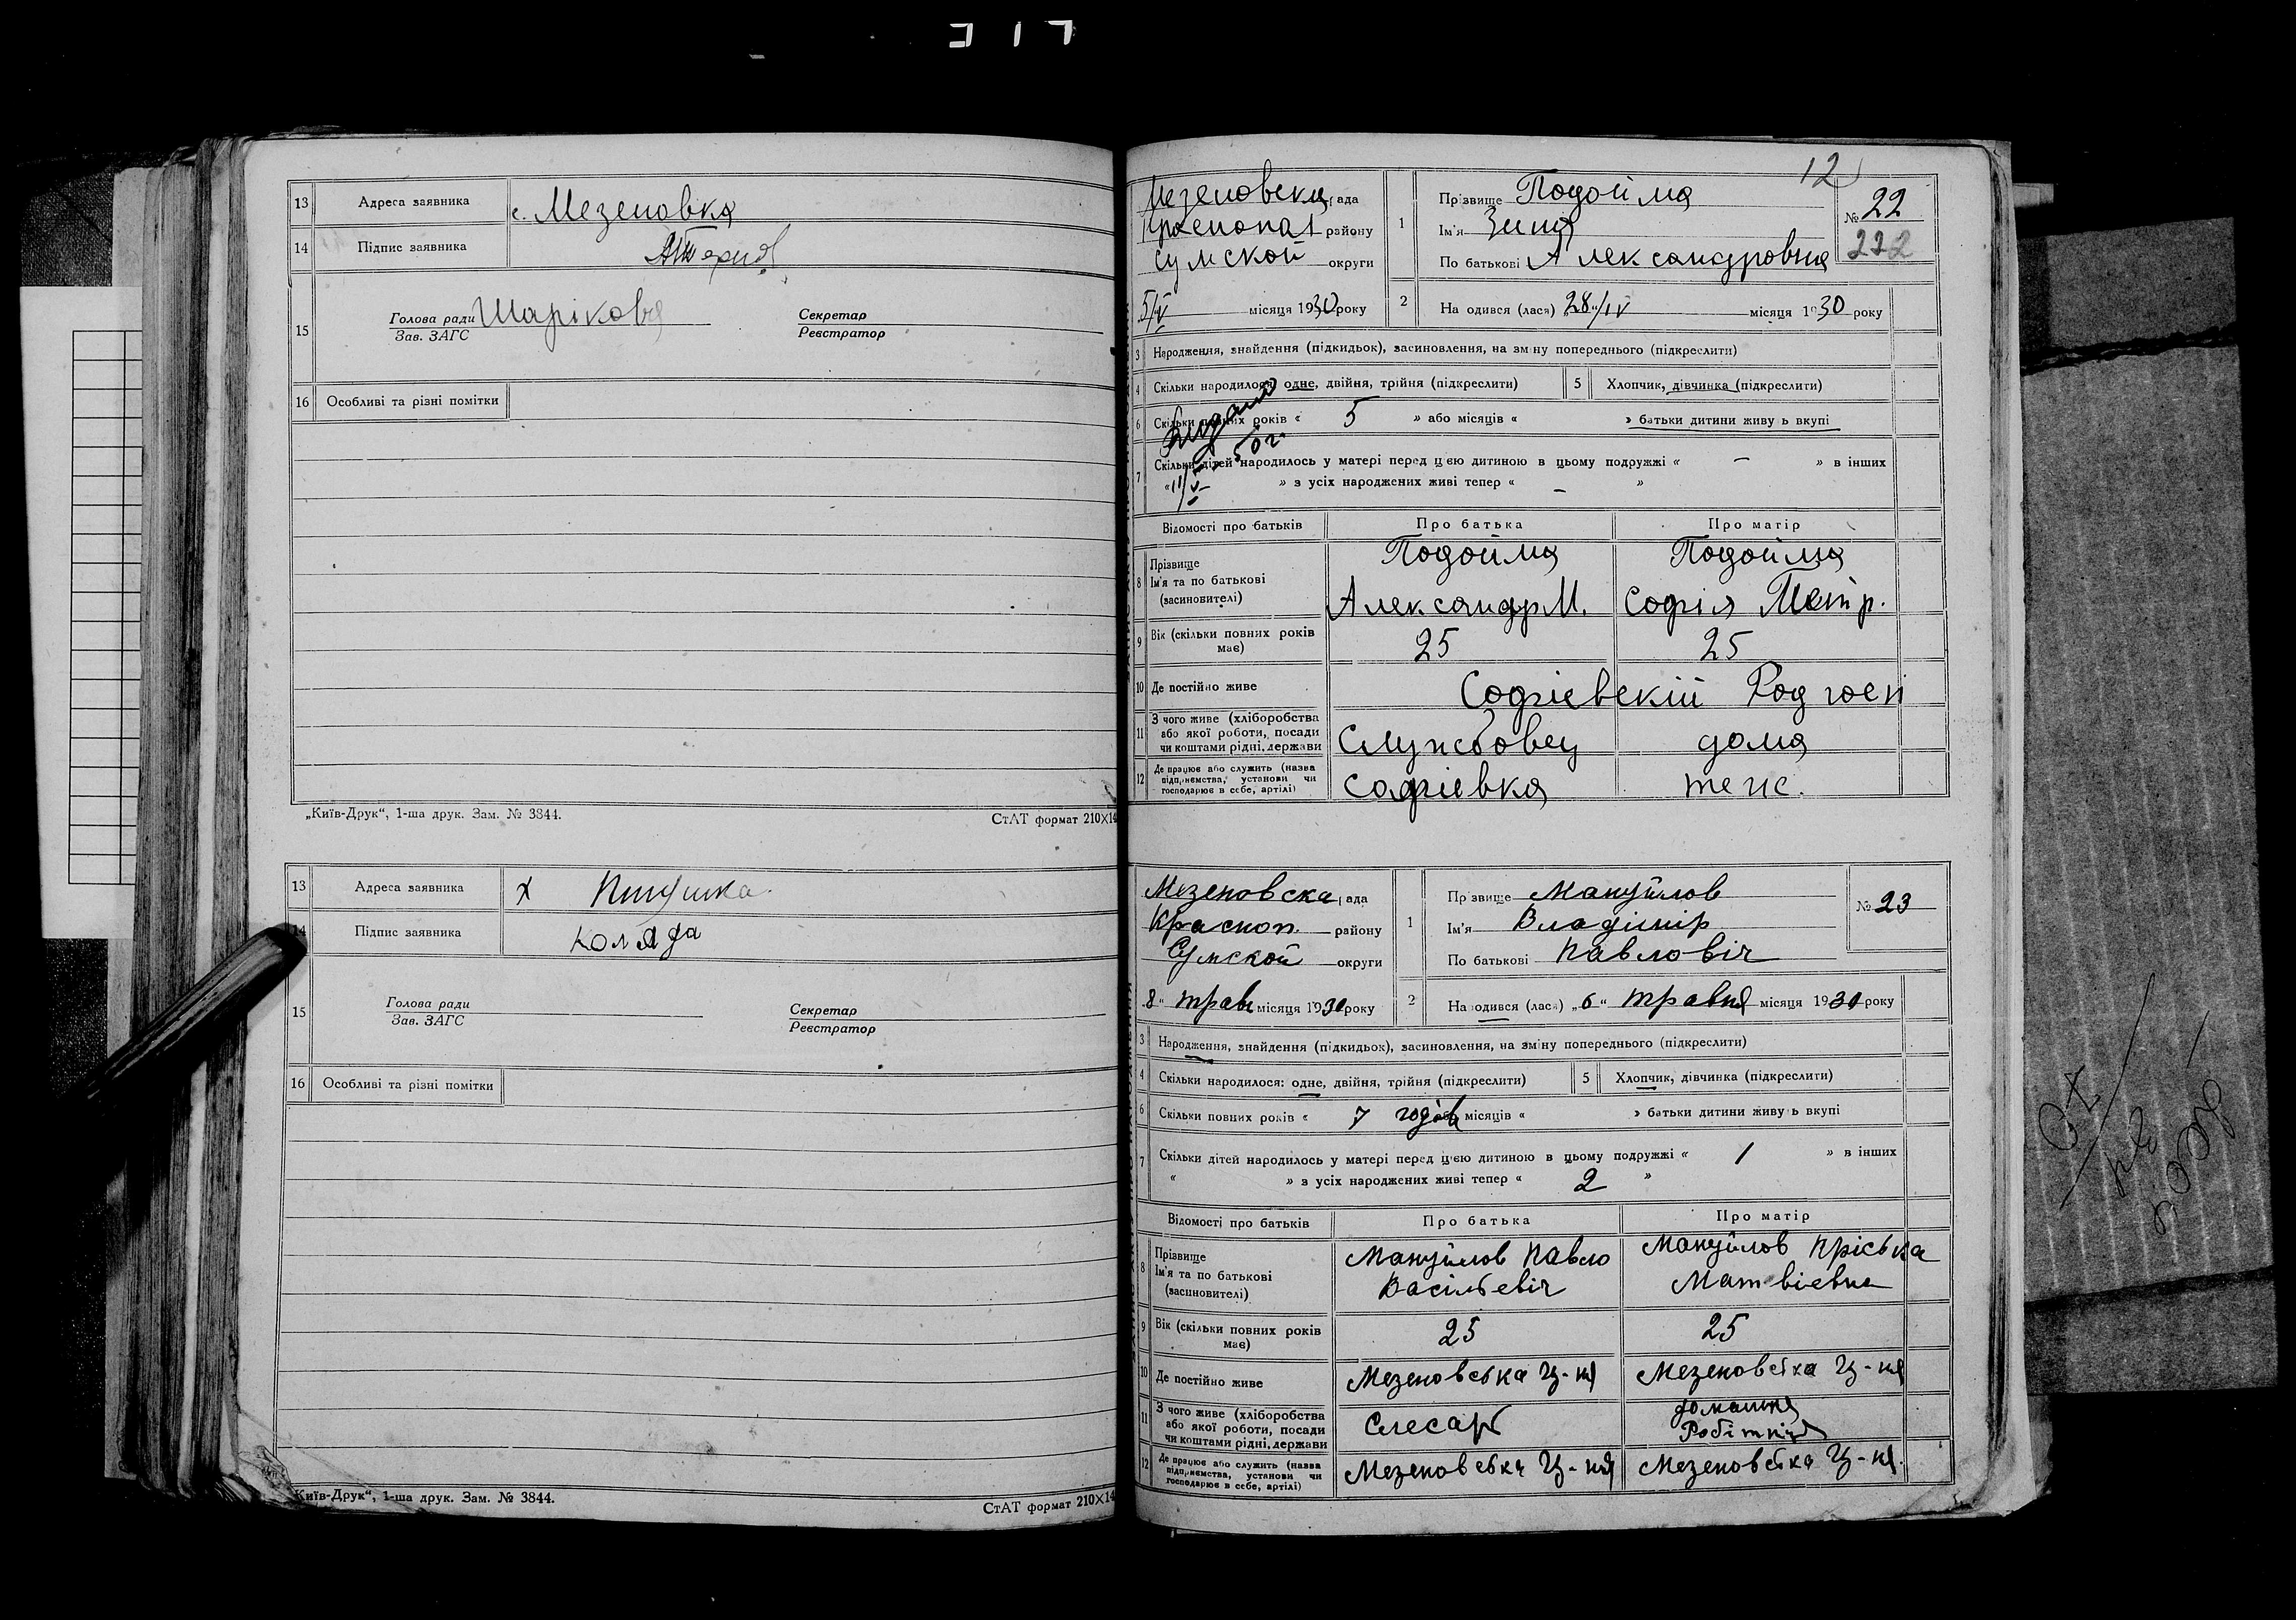 317
13 Адреса заявника с. Мезеновка
14 Підпис заявника
15 Голова ради Шарікова Секретар
Зав. ЗАГС Реєстратор
16 Особливі та різні помітки
„Київ-Друк“, 1-ша друк. Зам. № 3844. СтАТ формат 210×14
13 Адреса заявника х
14 Підпис заявника Коляда
15 Голова ради Секретар
Зав. ЗАГС Реєстратор
16 Особливі та різні помітки
Київ-Друк“, 1-ша друк. Зам. № 3844. СтАТ формат 210×14
12
Мезеновска рада
района
Сумской округи
5/V місяця 1930 року
1 Прізвище Подойма
Ім'я Зина
По батькові Александровна
№ 22
222
2 На одився (лася) 28/IV місяця 1930 року
3 Народження, знайдення (підкидьок), засиновлення, на зміну попереднього (підкреслити)
4 Скільки народилося: одне, двійня, трійня (підкреслити) 5 Хлопчик, дівчинка (підкреслити)
6 Скільки повних років « 5 » або місяців « » батьки дитини живу ь вкупі
Видано
11/V 50 г.
7 Скільки дітей народилось у матері перед цією дитиною в цьому подружжі « – » в інших
« » з усіх народжених живі тепер « – »
Відомості про батьків Про батька Про матір
8 Прізвище Ім'я та по батькові (засиновителі) Подойма Александр М. Подойма Софія
9 Вік (скільки повних років має) 25 25
10 Де постійно живе Софіевский Радгосп
11 З чого живе (хліборобства або якої роботи, посади чи коштами рідні, держави Службовец дома
12 Де працює або служить (назва підприємства, установи чи господарює в себе, артілі) Софіевка теж.
Мезеновска рада
Красноп. району
Сумской округи
8" трав місяця 1930 року
1 Прізвище Мануйлов
Ім'я Владімір
По батькові Павловіч
№ 23
2 На одився (лася) „6“ травня місяця 1930 року
3 Народження, знайдення (підкидьок), засиновлення, на зміну попереднього (підкреслити)
4 Скільки народилося: одне, двійня, трійня (підкреслити) 5 Хлопчик, дівчинка (підкреслити)
6 Скільки повних років « 7 годів або місяців « » батьки дитини живу ь вкупі
7 Скільки дітей народилось у матері перед цією дитиною в цьому подружжі « 1 » в інших
« » з усіх народжених живі тепер « 2 »
Відомості про батьків Про батька Про матір
8 Прізвище Ім'я та по батькові (засиновителі) Мануйлов Павло Васільевіч Мануйлов Пріська Матвіевна
9 Вік (скільки повних років має) 25 25
10 Де постійно живе Мезеновська Ц-ня Мезеновська Ц-ня
11 З чого живе (хліборобства або якої роботи, посади чи коштами рідні, держави Слесарь домашня Робітніця
12 Де працює або служить (назва підприємства, установи чи господарює в себе, артілі) Мезеновська Ц-ня Мезеновська Ц-ня.